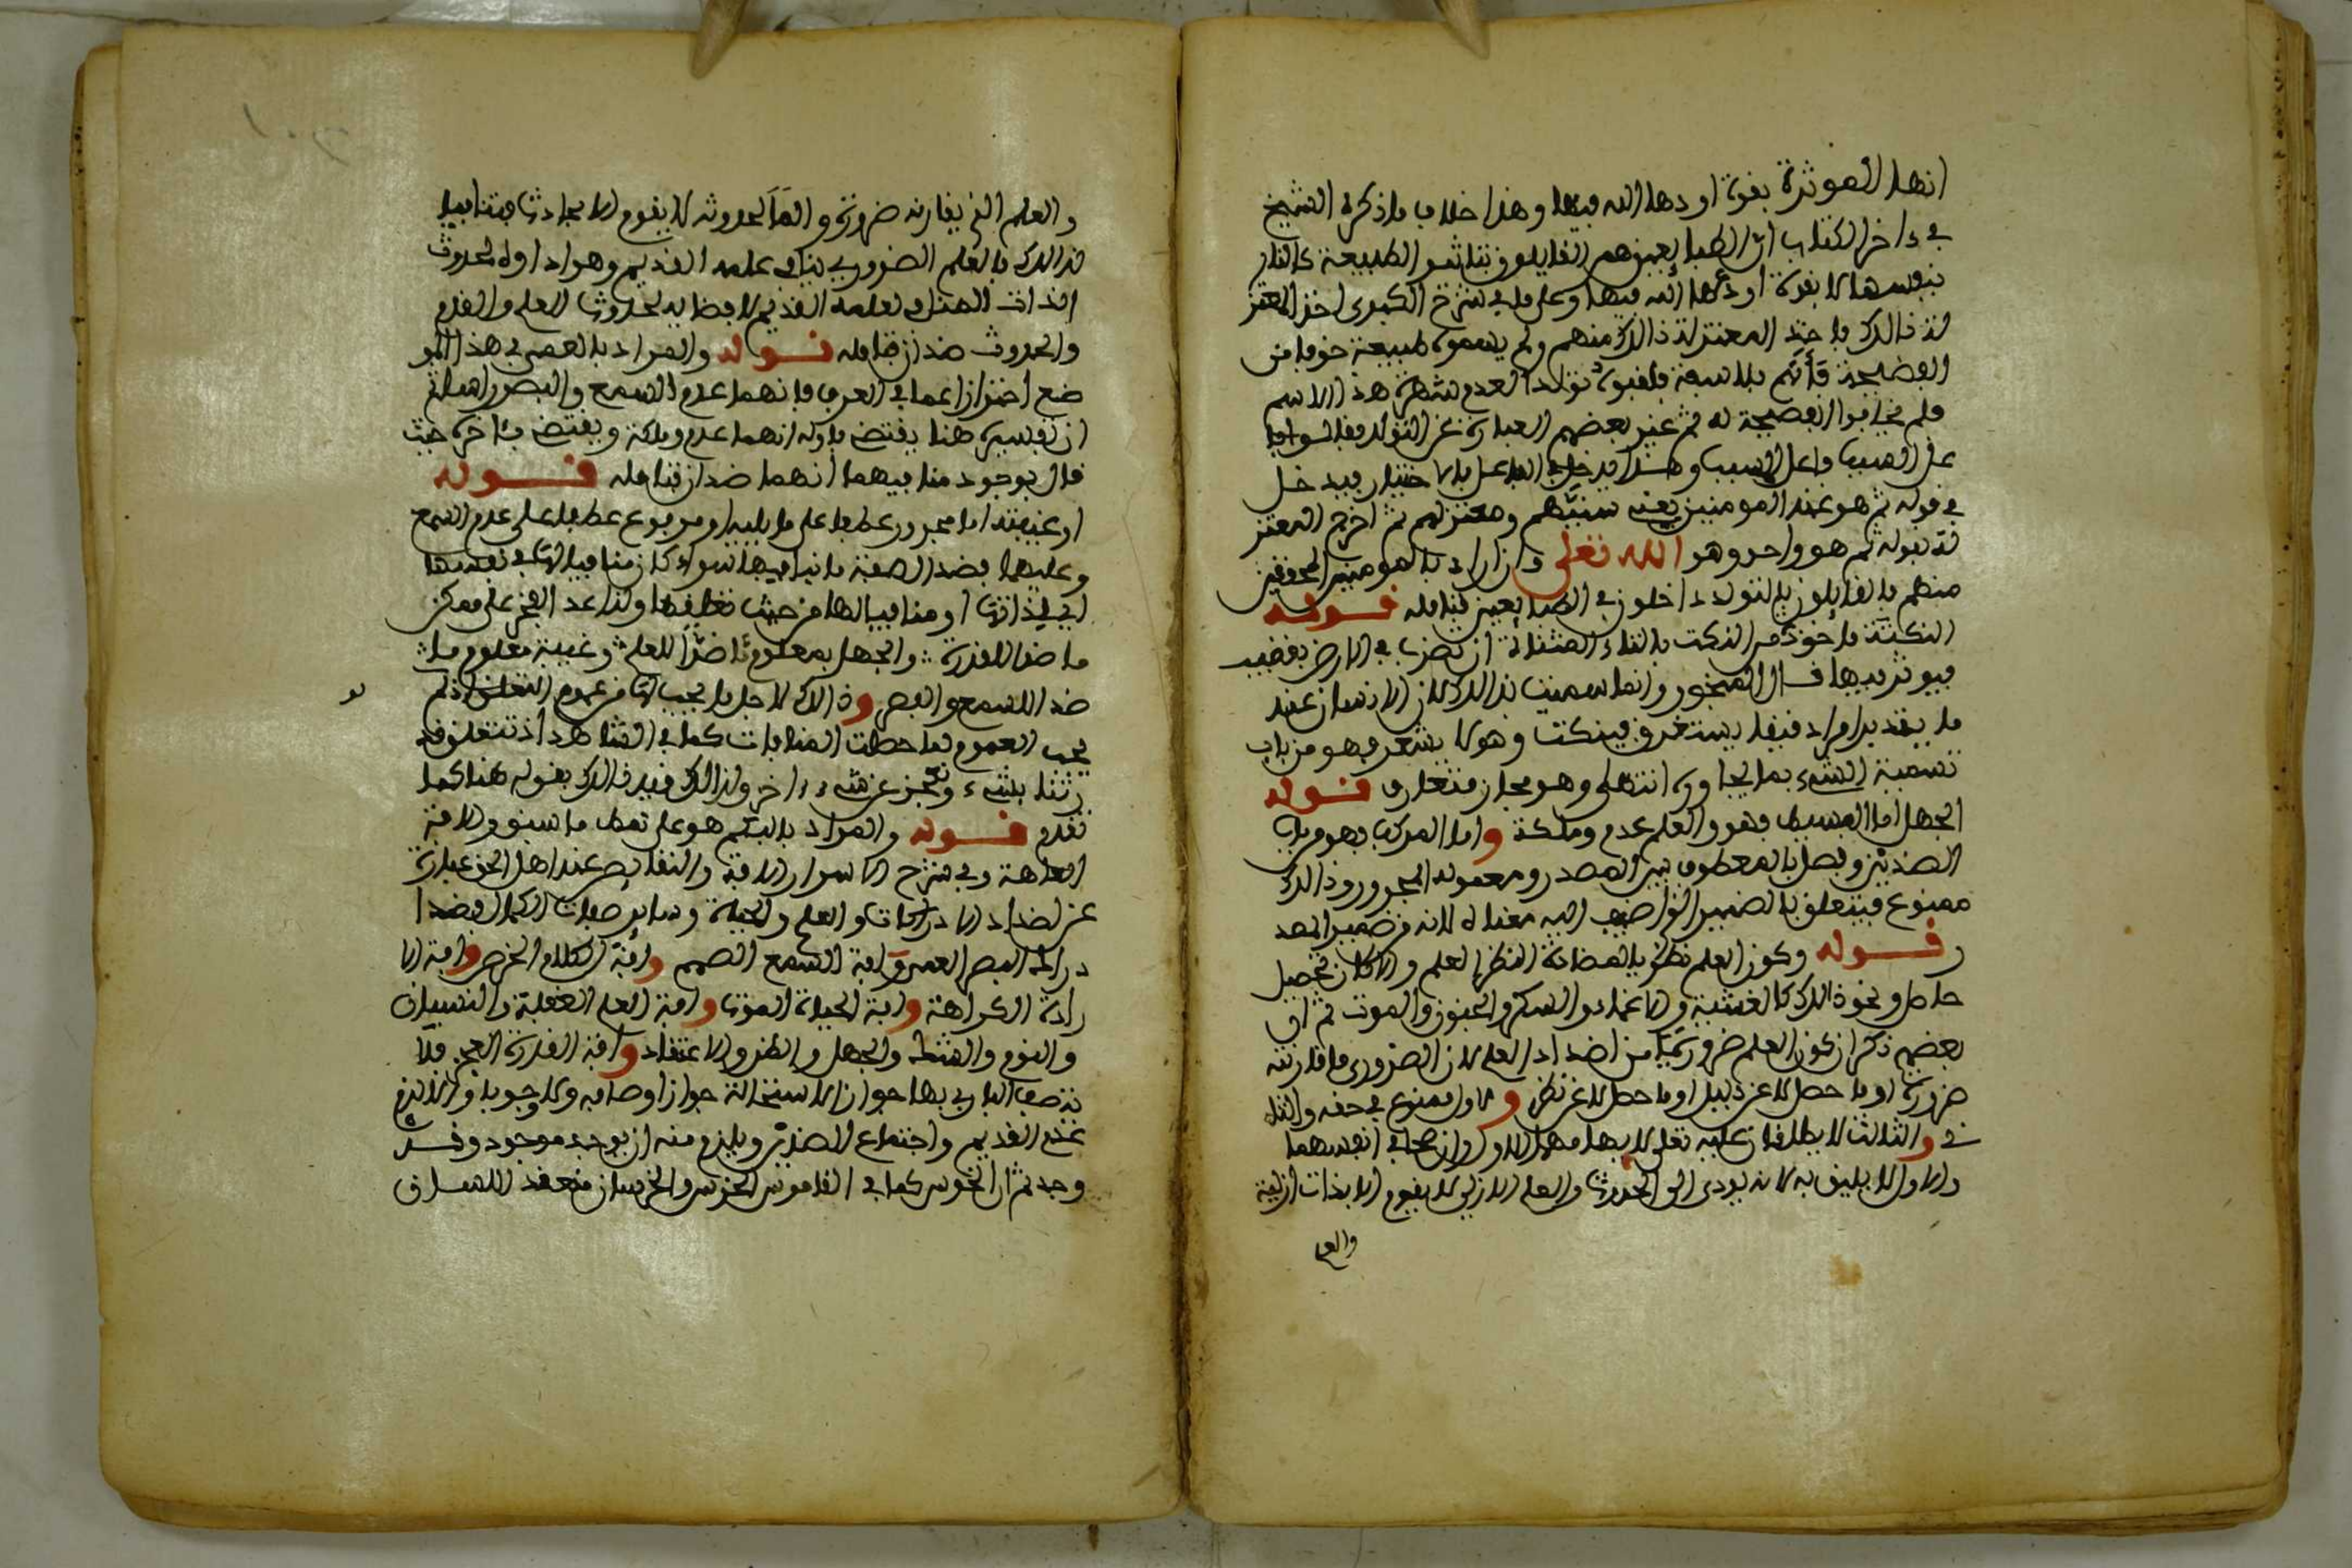 انها المؤثرة بقوة اودعها الله فيها وهذا خلاف ما ذكره الشيخ
في داخر الكتاب ان الطبايعيين هم القايلون بتاثير الطبيعة كالنار
بنفسها لا بقوة اودعها الله فيها وعلى ما في شرح الكبرى اخذ المعتز
لة ذالك ما خذ المعتزلة ذالك منهم ولم يسموه طبيعة خوفا من
الفضيحة بالاسم فلقبوه تولدا لعدم شهرة هذا الاسم
فلم يخافوا الفضيحة له ثم غير بعضهم العبارة عن التولد فقالوا
على السبب فاعل المسبب وهذا يدخل في الفاعل بالاختيار فيدخل
في قوله ثم هو عند المومنين يعني سنيهم ومعتزلهم ثم اخرج المعتز
لة بقوله ثم هو واحد وهو الله تعلى وان اراد بالمومنين المحققين
منهم فالقايلون بالتولد داخلون في الطبايعيين فتامله قوله
النكتة ماخوذ من النكت بالتاء المثناة ان تضرب في الارض بقضيب
فيوثر فيها قال المنجور وانما سميت بذالك لان الانسان عند
ما يفيد امرا دقيقا يستغرق فينكت وهو لا يشعر فهو من باب
تسمية الشيء بما يجاوره انتهى وهو مجاز متعارف قوله
الجهل اما البسيط فهو والعلم عدم وملكة واما المركب فهو من باب
الضدين وفصل بالمعطوف بين المصدر ومعموله المجرور وذالك
ممنوع فيتعلق بالضمير الواضيف اليه معناه لانه من ضمير المصد
ر قوله وكون العلم نظريا لمضادة النظر العلم والا كان تحصيل
حاصل ونحو ذالك كالغشية والاغماء والسكر والجنون والموت ثم ان
بعضهم ذكر ان كون العلم ضروريا من اضداد العلم لان الضروري ما قارنته
ضرورة او ما حصل لا عن دليل او ما حصل لا عن نظر والاول ممنوع في حقه والثا
ني والثالث لا يطلقان عليه تعلى لابهامهما الاول وان صحا في انفسهما
والاول لا يليق به لانه يودي الى الحدوث والعلم الازلي لا يقوم الا بذات ازلية
والعلم
والعلم الذي يقارنه ضرورة والم الحدوثه لا يقوم الا بحادث فتنافيا
فذالك بالعلم الضروري ينافي علمه القديم وهو اداوه لحدوث
الذات المنافي لعلمه القديم لافضايه لحدوث العلم والقدم
والحدوث ضدان فتامله قوله والمراد بالعمى في هذا المو
ضع احترازا عما في العرف فانهما عدم السمع والبصر راسا ثم
ان تفسيره هنا يقتضي باوله انهما عدم وملكة ويقتضي بئاخره حيث
قال بوجود منافيهما انهما ضدان فتامله قوله
او غيبته اما مجرور عطفا على ما يليه او مرفوع عطفا على عدم السمع
وعليهما فضد الصفة ما ينافيها سواء كان منافيا لها في نفسها
اي لذاتها او منافيا لها من حيث تعلقها ولذا عد العجز على ممكن
ما ضدا للقدرة والجهل بمعلوم ما ضدا للعلم وغيبة معلوم ما
ضد اللسمع والبصر وذالك لاجل ما يجب لها من عموم التعلق اذ لم
يجب العموم لما حصلت المنافات كما في الشاهد اذ تتعلق قد
رتنا بشيء وتعجز عن شيء ءاخر ولذالك قيد ذالك بقوله هنا كما
تقدم قوله والمراد بالبكم هو على نمط ما سبق والافة
العاهة وفي شرح الاسرار الافة والنقايص عند اهل الحق عبارة
عن اضداد الادراكات والعلم والحياة وساير صفات الكمال فضد ا
دراك البصر العمى وافة السمع الصمم وافة الكلام الخرس وافة الا
رادة الكراهة وافة الحياة الموت وافة العلم الغفلة والنسيان
والنوم والشك والجهل والظن والاعتقاد وافة القدرة العجز فلا
يتصف الباري بها جوازا لاستحالة جواز اوصافه ولا وجوبا والا لزم
عدم القديم واجتماع الضدين ويلزم منه ان يوجد موجود وقد
وجد ثم ان الخرس كما في القاموس الخرس والخرسان منعقد اللسان